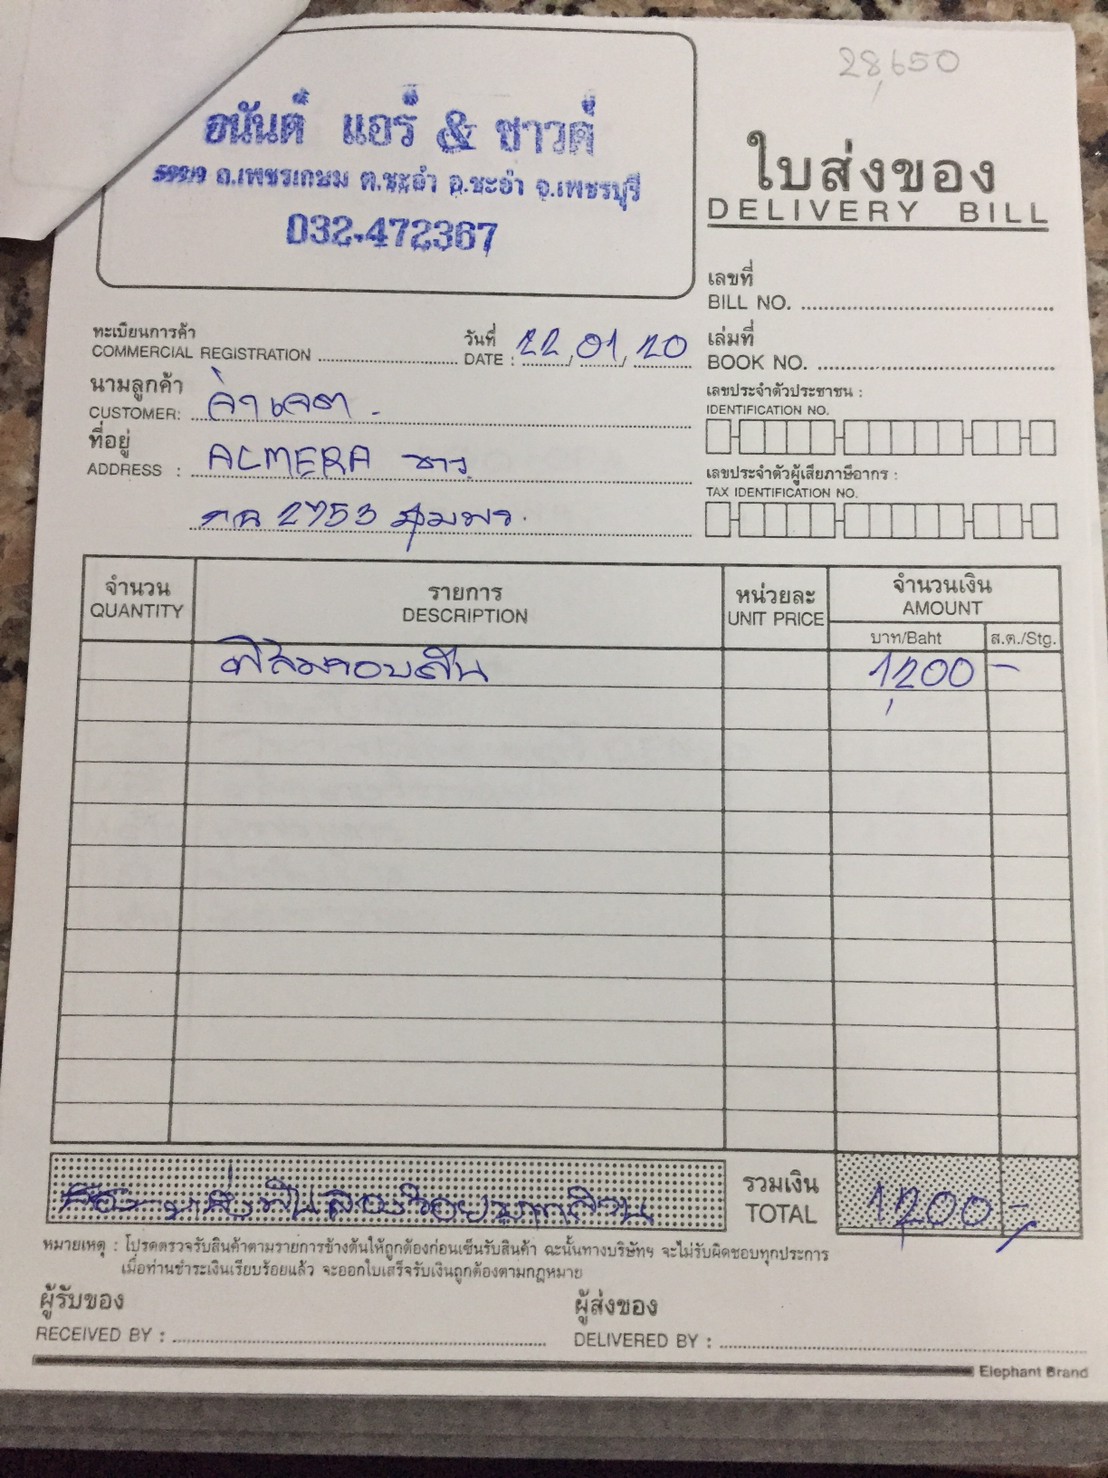 28,650
อนันต์ แอร์ & ซาวด์
599/9 ถ.เพชรเกษม ต.ชะอำ อ.ชะอำ จ.เพชรบุรี
032-472367
ใบส่งของ
DELIVERY BILL
เลขที่
BILL NO.
ทะเบียนการค้า
COMMERCIAL REGISTRATION
วันที่
DATE : 22, 01, 20
เล่มที่
BOOK NO.
นามลูกค้า
CUSTOMER:
ที่อยู่
ADDRESS : ALMERA ขาว
2753 ชุมพร.
เลขประจำตัวประชาชน :
IDENTIFICATION NO.
เลขประจำตัวผู้เสียภาษีอากร :
TAX IDENTIFICATION NO.
จำนวน
QUANTITY
รายการ
DESCRIPTION
หน่วยละ
UNIT PRICE
จำนวนเงิน
AMOUNT
บาท/Baht
ส.ต./Stg.
ฟิล์มรอบคัน 1,200 -
รวมเงิน
TOTAL 1,200 -
หมายเหตุ : โปรดตรวจรับสินค้าตามรายการข้างต้นให้ถูกต้องก่อนเซ็นรับสินค้า ฉะนั้นทางบริษัทฯ จะไม่รับผิดชอบทุกประการ
เมื่อท่านชำระเงินเรียบร้อยแล้ว จะออกใบเสร็จรับเงินถูกต้องตามกฎหมาย
ผู้รับของ
RECEIVED BY :
ผู้ส่งของ
DELIVERED BY :
Elephant Brand